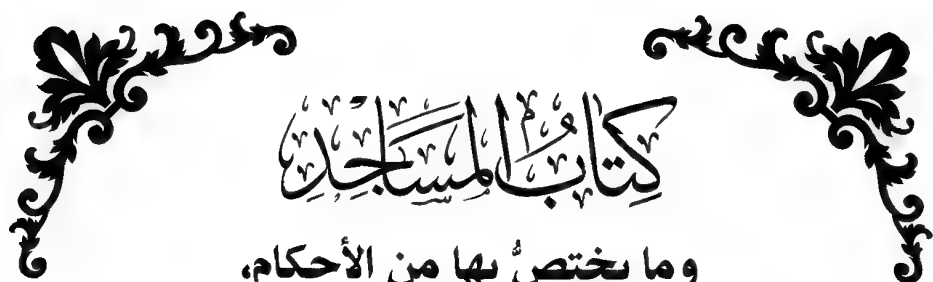 كِتَابُ المَسَاجِدِ
وما يختصُّ بها من الأحكام،